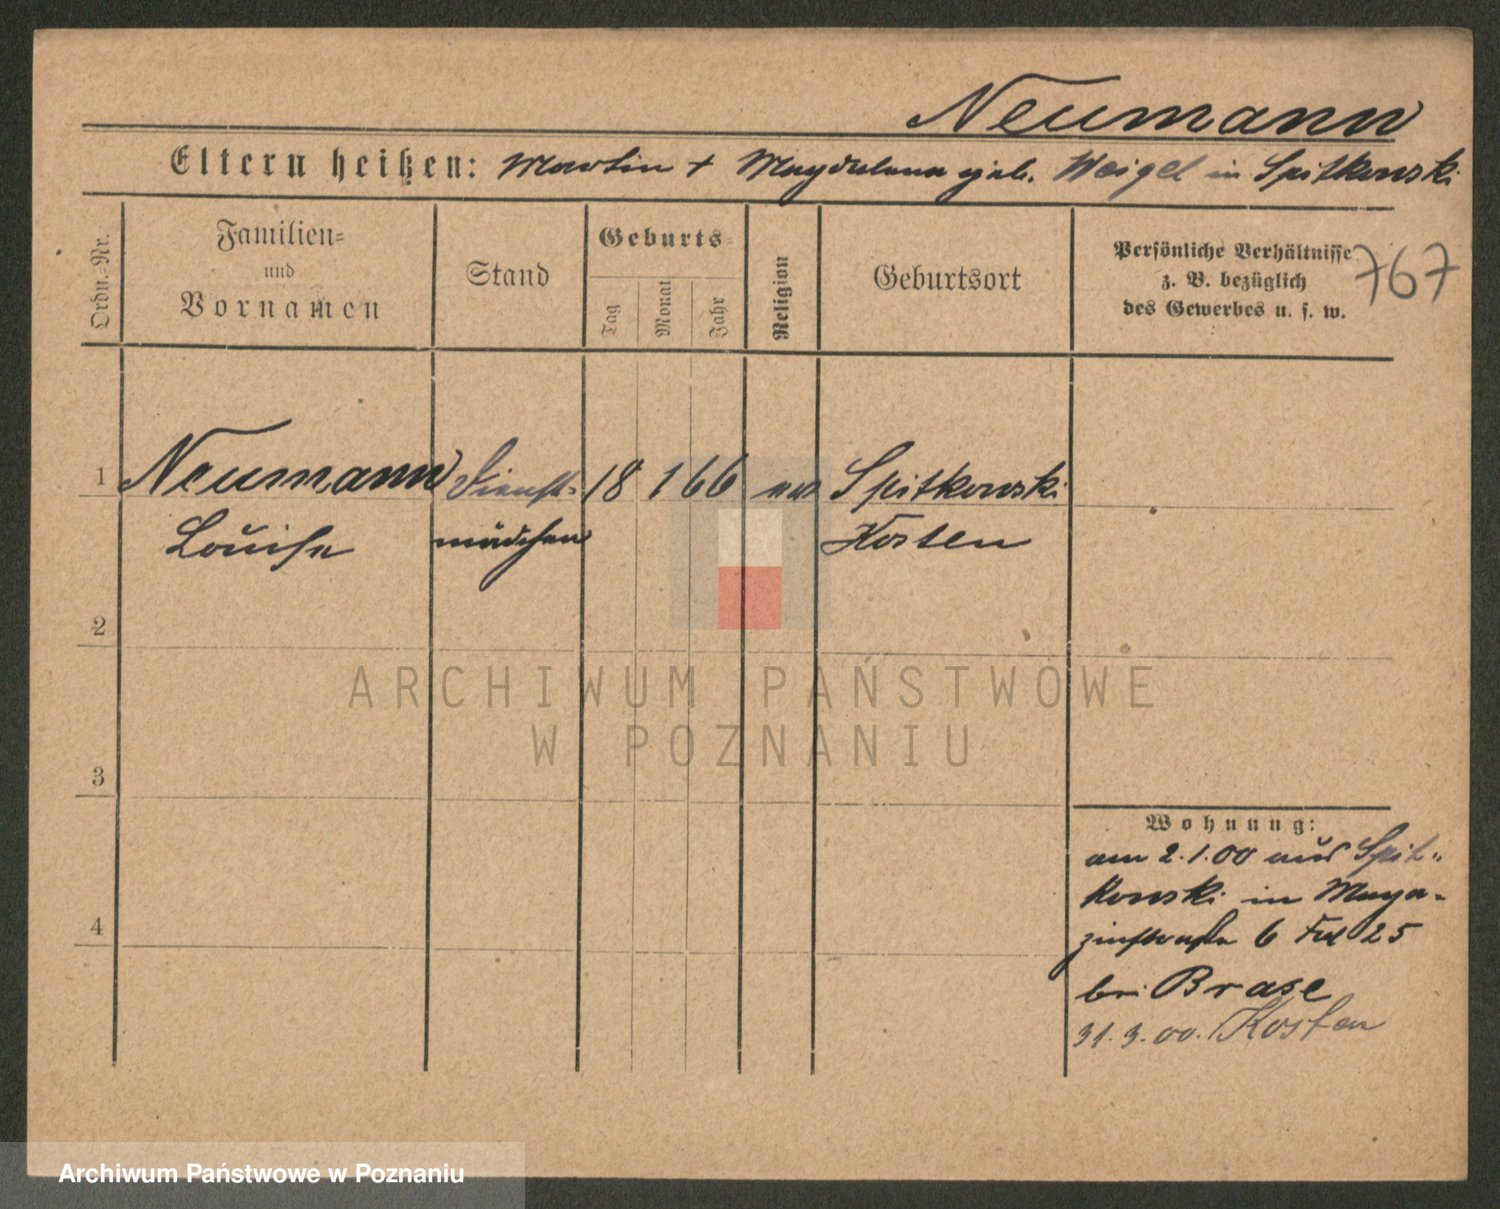 Neumann
Eltern heißen: Martin + Magdalena geb. Weigel in Spitkowski
Ordn.-Nr.
Familien-
und
Vornamen
Stand
Geburts-
Tag
Monat
Jahr
Religion
Geburtsort
Persönliche Verhältnisse
z. B. bezüglich
des Gewerbes u. s. w.
767
1 Neumann Dienst- 18 1 66 Spitkowski
Louise mädchen Kosten
2
3
4
ARCHIWUM PAŃSTWOWE
W POZNANIU
Wohnung:
am 2.1.00 aus Spit-
kowski in Maga-
zinstraße 6 25
bei Brase
31.3.00. Kosten
Archiwum Państwowe w Poznaniu